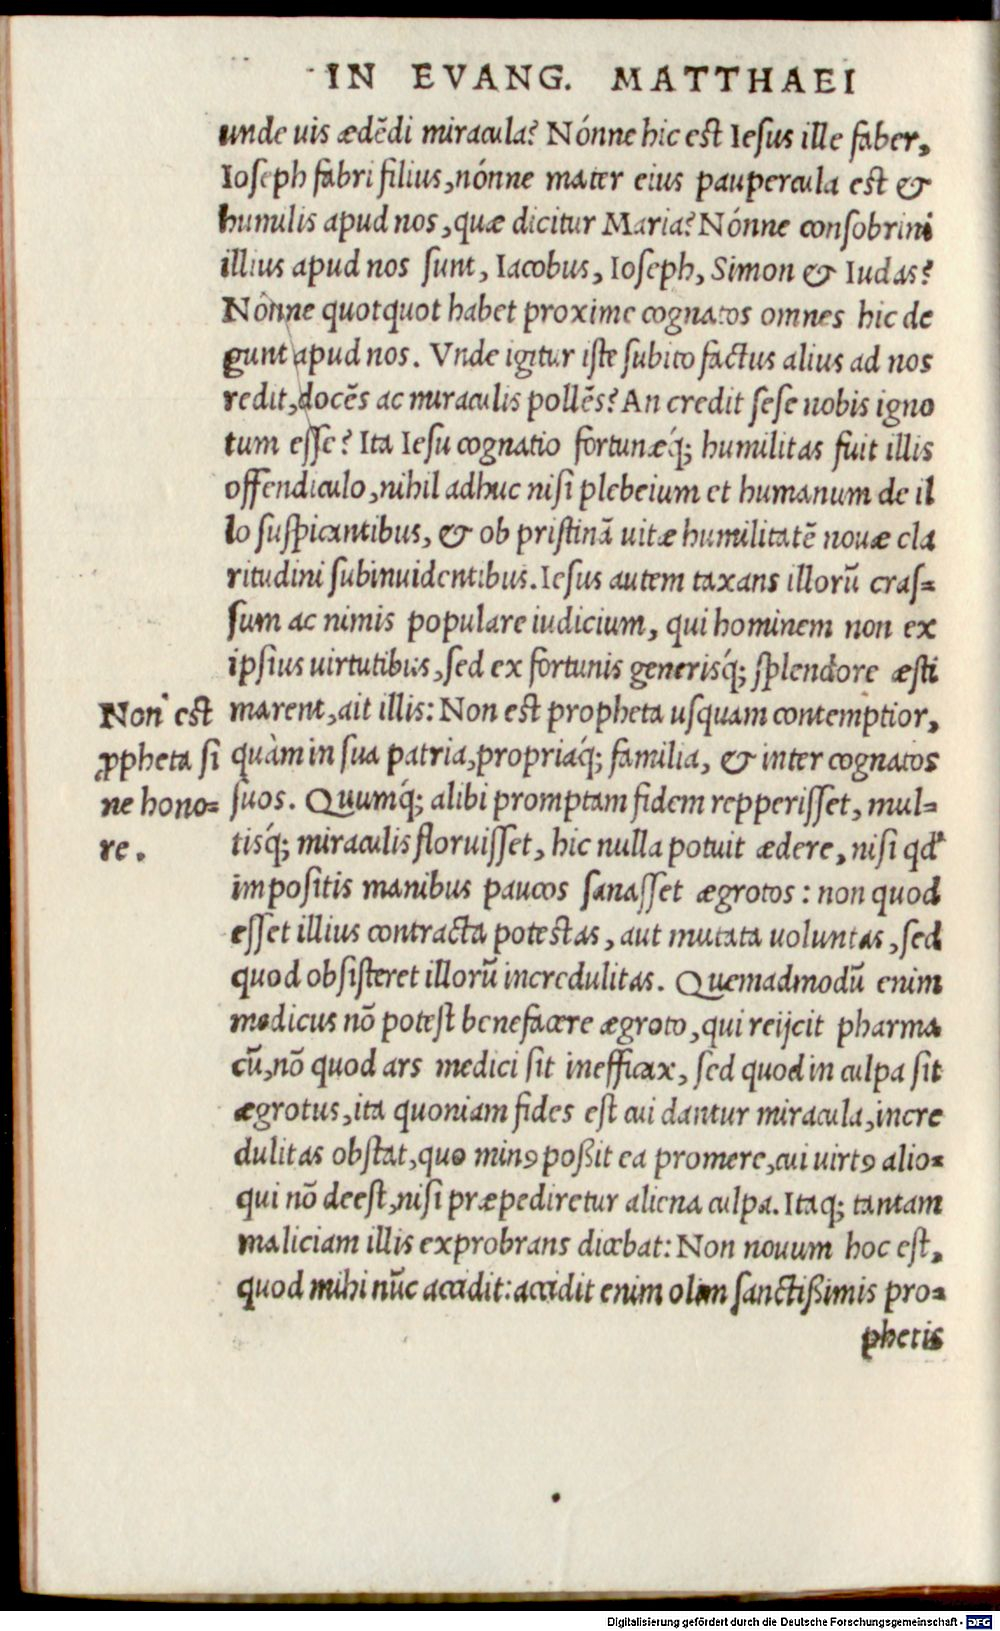 IN EVANG. MATTHAEI
unde uis ædēdi miracula? Nónne hic est Iesus ille faber,
Ioseph fabri filius, nónne mater eius paupercula est &
humilis apud nos, quæ dicitur Maria? Nónne consobrini
illius apud nos sunt, Iacobus, Ioseph, Simon & Iudas?
Nónne quotquot habet proxime cognatos omnes hic de
gunt apud nos. Vnde igitur iste subito factus alius ad nos
redit, docēs ac miraculis pollēs? An credit sese nobis igno
tum esse? Ita Iesu cognatio fortunæq́; humilitas fuit illis
offendiculo, nihil adhuc nisi plebeium et humanum de il
lo suspicantibus, & ob pristinā uitæ humilitatē nouæ cla
ritudini subinuidentibus. Iesus autem taxans illorū cras=
sum ac nimis populare iudicium, qui hominem non ex
ipsius uirtutibus, sed ex fortunis generisq́; splendore æsti
marent, ait illis: Non est propheta usquam contemptior,
quàm in sua patria, propriaq́; familia, & inter cognatos
suos. Quumq́; alibi promptam fidem repperisset, mul=
tisq́; miraculis floruisset, hic nulla potuit ædere, nisi qd'
impositis manibus paucos sanasset ægrotos: non quod
esset illius contracta potestas, aut mutata uoluntas, sed
quod obsisteret illorū incredulitas. Quemadmodū enim
medicus nō potest benefacere ægroto, qui reijcit pharma
cū, nō quod ars medici sit inefficax, sed quod in culpa sit
ægrotus, ita quoniam fides est cui dantur miracula, incre
dulitas obstat, quo minꝰ poßit ea promere, cui uirtꝰ alio=
qui nō deest, nisi præpediretur aliena culpa. Itaq; tantam
maliciam illis exprobrans dicebat: Non nouum hoc est,
quod mihi nūc accidit: accidit enim olim sanctißimis pro=
phetis
Non est
ꝓpheta si
ne hono=
re.
Digitalisierung gefördert durch die Deutsche Forschungsgemeinschaft - DFG